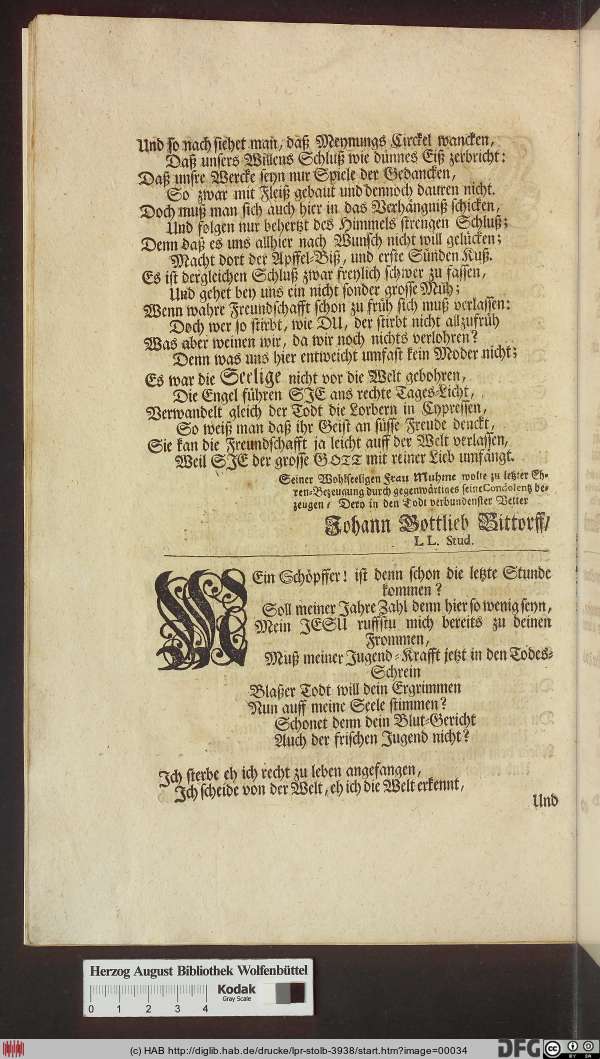 Und so nach siehet man, daß Meynungs Circkel wancken,
Daß unsers Willens Schluß wie dünnes Eiß zerbricht:
Daß unsre Wercke seyn nur Spiele der Gedancken,
So zwar mit Fleiß gebaut und dennoch dauren nicht.
Doch muß man sich auch hier in das Verhängniß schicken,
Und folgen nur behertzt des Himmels strengen Schluß;
Denn daß es uns allhier nach Wunsch nicht will gelücken;
Macht dort der Apffel-Biß, und erste Sünden Kuß.
Es ist dergleichen Schluß zwar freylich schwer zu fassen,
Und gehet bey uns ein nicht sonder grosse Müh;
Wenn wahre Freundschafft schon zu früh sich muß verlassen:
Doch wer so stirbt, wie DU, der stirbt nicht allzufrüh
Was aber weinen wir, da wir noch nichts verlohren?
Denn was uns hier entweicht umfast kein Moder nicht;
Es war die Seelige nicht vor die Welt gebohren,
Die Engel führen SIE ans rechte Tages-Licht,
Verwandelt gleich der Todt die Lorbern in Cypressen,
So weiß man daß ihr Geist an süsse Freude denckt,
Sie kan die Freundschafft ja leicht auff der Welt verlassen,
Weil SIE der grosse GOTT mit reiner Lieb umfängt.
Seiner Wohlseeligen Frau Muhme wolte zu letzter Eh-
ren-Bezeugung durch gegenwärtiges seine Condolentz be-
zeugen, Dero in den Todt verbundenster Vetter
Johann Gottlieb Bittorff,
LL. Stud.
MEin Schöpffer! ist denn schon die letzte Stunde
kommen?
Soll meiner Jahre Zahl denn hier so wenig seyn,
Mein JESU ruffstu mich bereits zu deinen
Frommen,
Muß meiner Jugend-Krafft jetzt in den Todes-
Schrein
Blaßer Todt will dein Ergrimmen
Nun auff meine Seele stimmen?
Schonet denn dein Blut-Gericht
Auch der frischen Jugend nicht?
Ich sterbe eh ich recht zu leben angefangen,
Ich scheide von der Welt, eh ich die Welt erkennt,
Und
Herzog August Bibliothek Wolfenbüttel
0 1 2 3 4 Kodak
Gray Scale
(c) HAB http://diglib.hab.de/drucke/lpr-stolb-3938/start.htm?image=00034
DFG